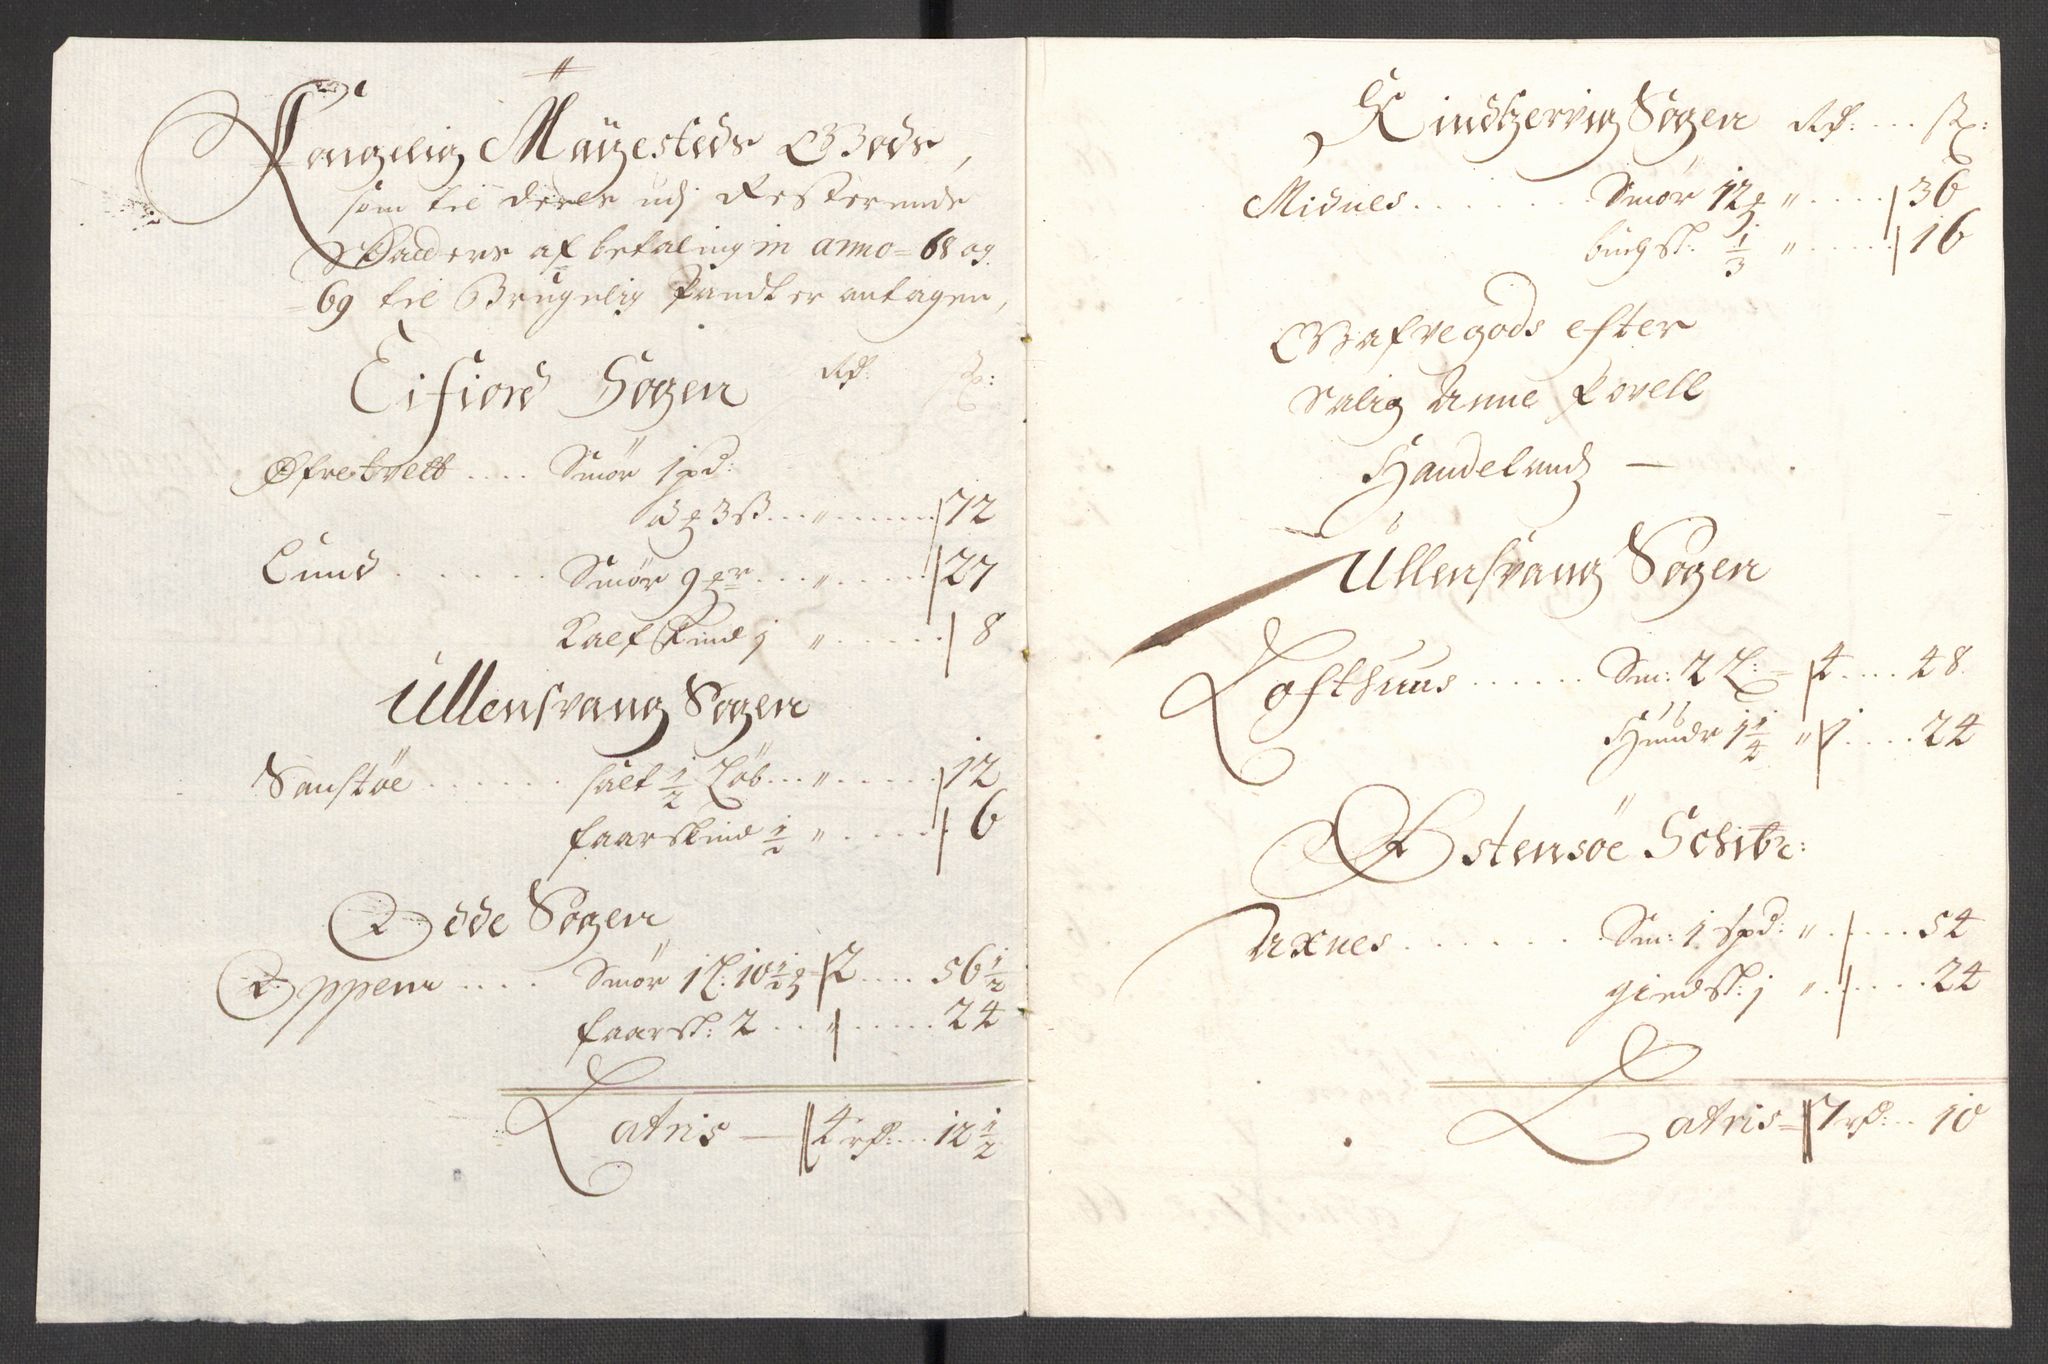 Kongelig Mayestedz Gods,
som til deris udj Resterende
Schalders afbetaling in anno = 68 og
= 69 til Brugelig Pandt er antagen,
Eifiord Sogen Rd: ß:
Øfre tvett .... Smør 1 pd:
3 ß ... " ...... 72
Lund ...... Smør 9 ... " ..... 27
Kalfskind j " ...... 8
Ullensvang Sogen
Sanstøe ...... salt 1/2 Løb ... " ..... 12
faarskind 1/2 " ..... 6
Odde Sogen
Oppem .... Smør 1 L: 10 1/2 - 2 .... 56 1/2
faarsk: 2 ... " ..... 24
Latris — 4 rd: ... 12 1/2
Kindtzervig Sogen Rd: ... ß:
Midnes ....... Smør 12 " .... 36
buchsk: 1/3 " ..... 16
Gafvegods efter
Salig Anne Povell
Handelandz —
Ullensvang Sogen
Lofthuus ...... Sm: 2 L: = 4 .... 48
Huudr 1 1/4 " 1 .... 24
Østensøe Schibr:
Axnes ....... Sm: 1 spd: " ..... 54
giedsk: j " ...... 24
Latris = 7 rd: .. 10